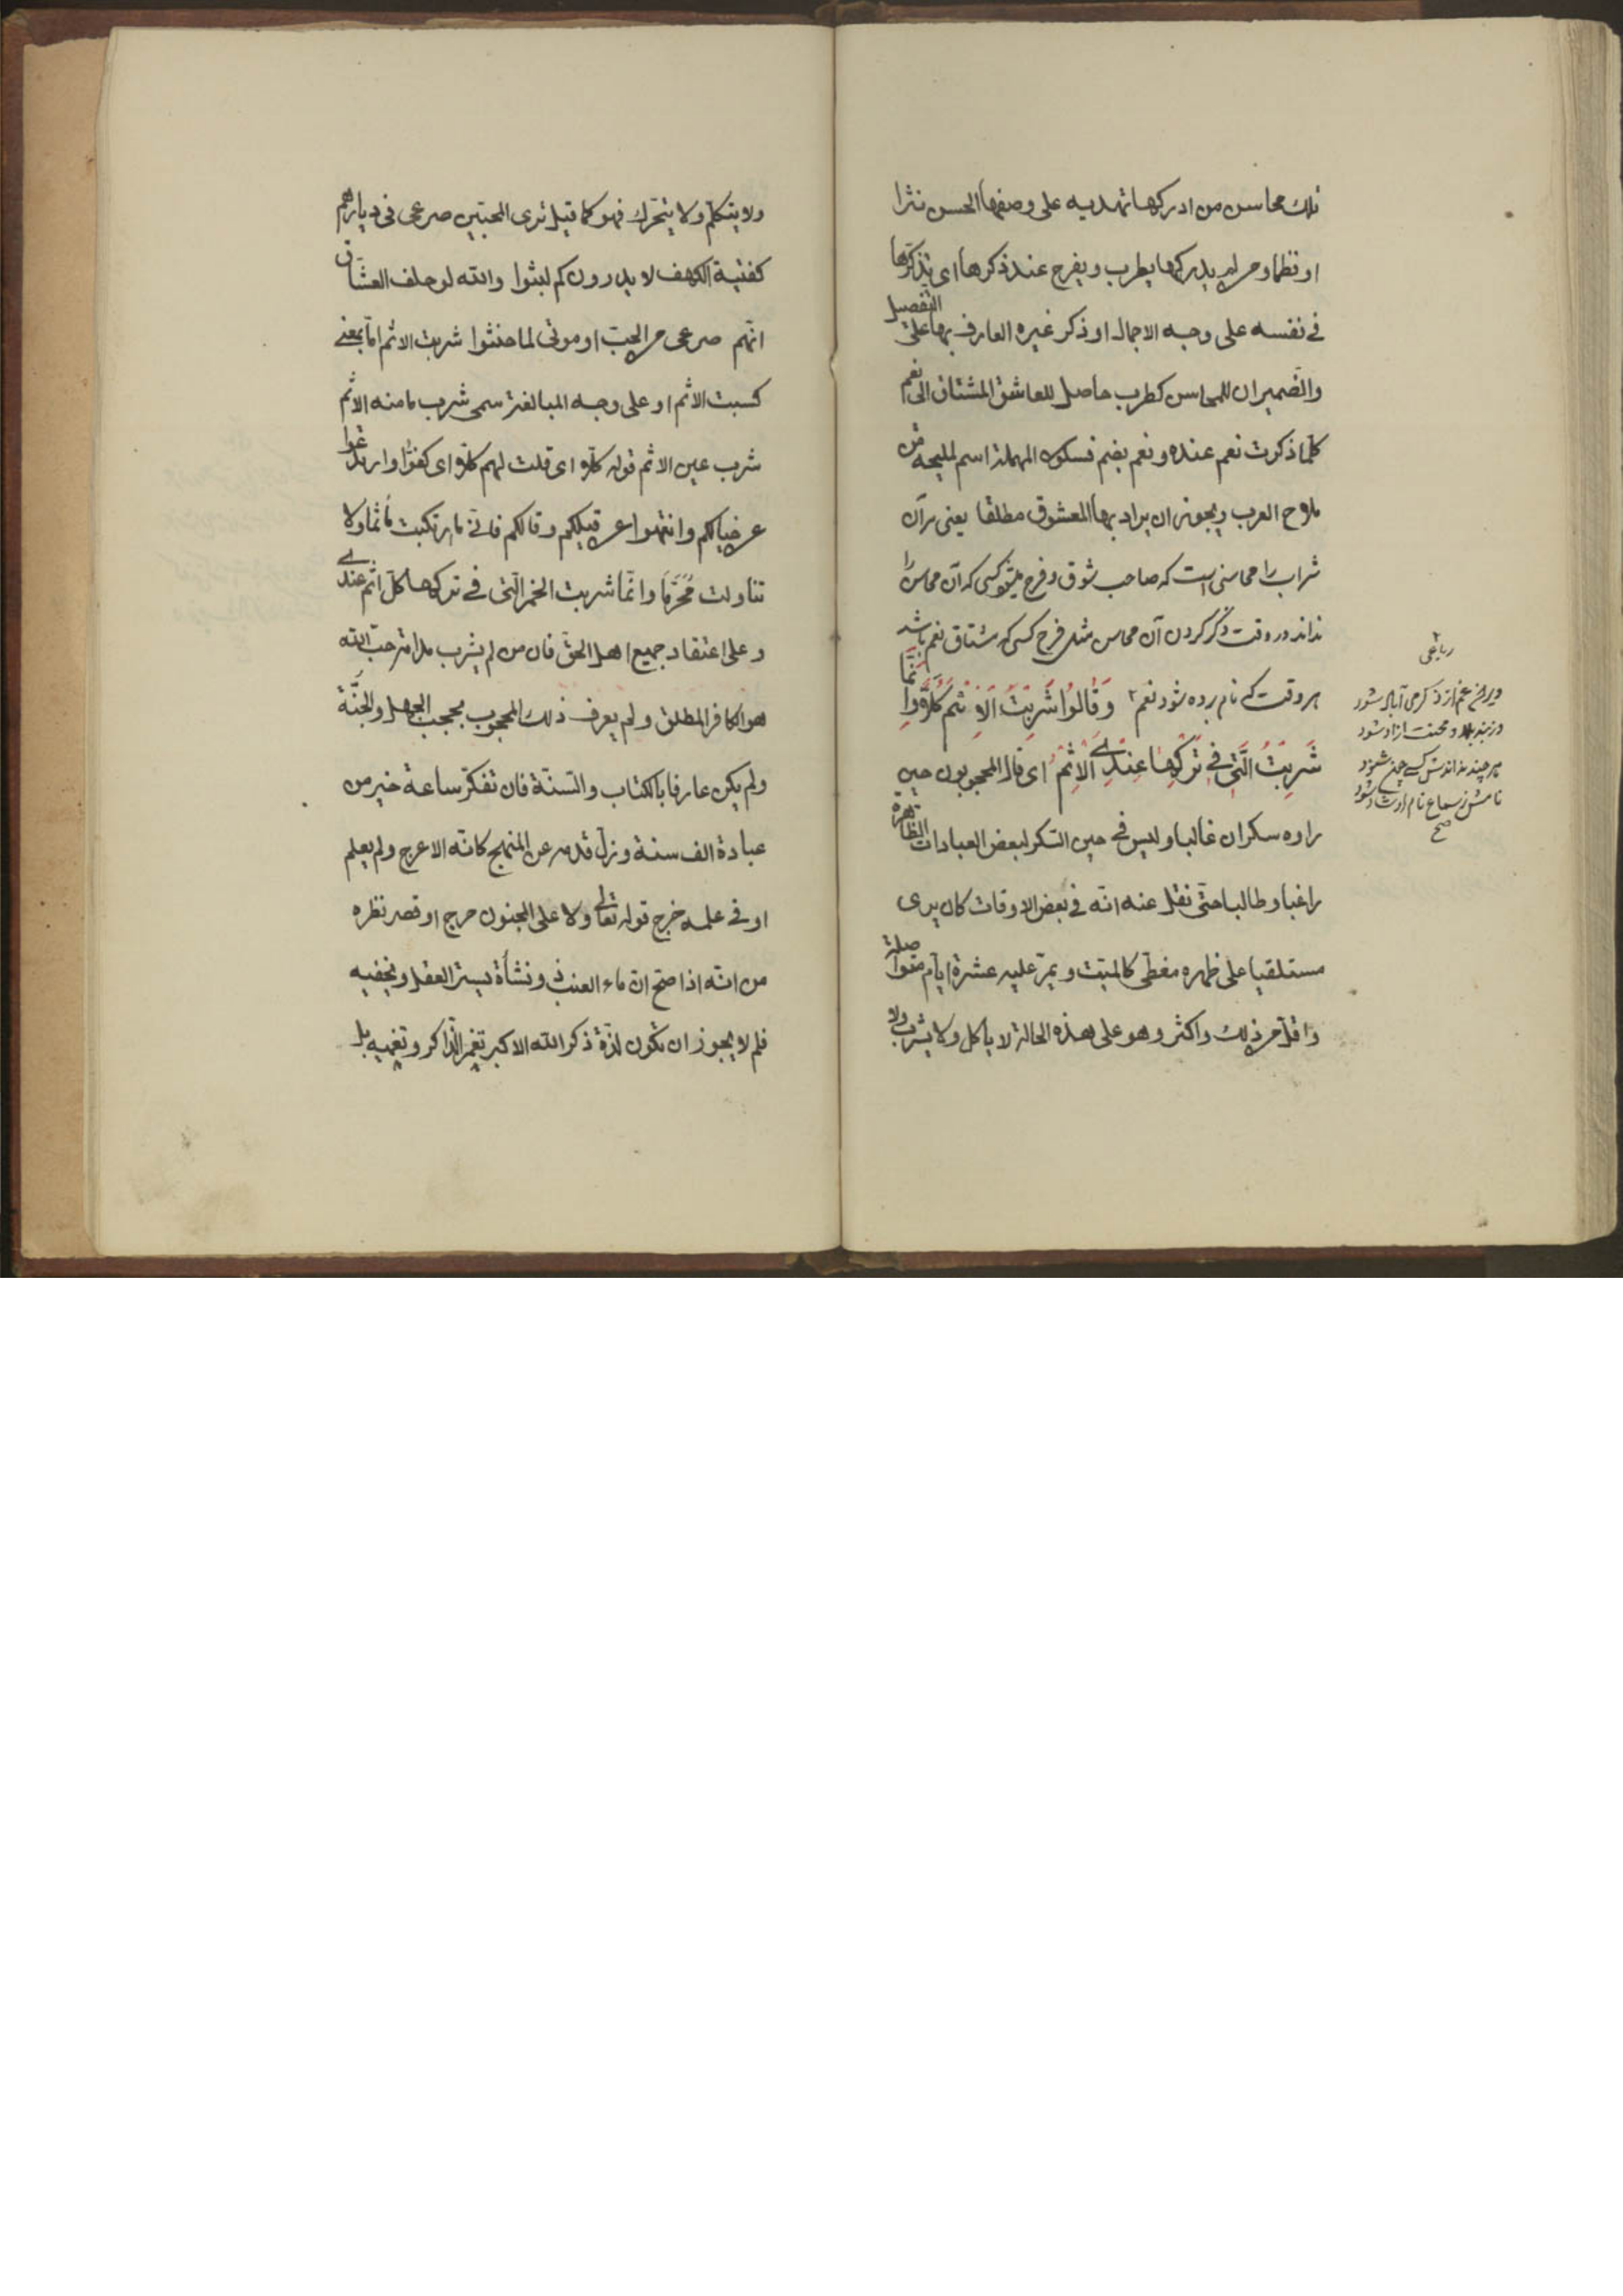 تلك محاسن من ادركها تهديه على وصفها الحسن نثرا
او نظما ومن لم يدركها يطرب ويفرح عند ذكرها اى تذكرها
فى نفسه على وجه الاجمال او ذكر غيره العارف بها على التفصيل
والضميران للمحاسن كطرب حاصل للعاشق المشتاق الى نعم
كلما ذكرت نعم عنده ونعم بضم فسكون المهملة اسم لمليحة من
ملاح العرب ويجوز ان يراد بها المعشوق مطلقا يعنى مر آن
شراب را محاسنى است كه صاحب شوق وفرح ميشود كسى كه آن محاسن را
نداند در وقت ذكر كردن آن محاسن مثل فرح كسى كه مشتاق نعم باشد
هر وقت كه نام برده شود نعم ٢ وَقَالُوا شَرِبْتَ الْاِثْمَ كَلَّا وَاِنَّمَا
شَرِبْتُ الَّتِى فِى تَرْكِهَا عِنْدِىَ الْاِثْمُ اى قال المحجوبون حين
راوه سكران غالبا وليس فى حين السكر لبعض العبادات الظاهرة
راغبا وطالبا حتى نقل عنه انه فى بعض الاوقات كان يرى
مستلقيا على ظهره مغطى كالميت ويمر عليه عشرة ايام متواصلة
واقل من ذلك واكثر وهو على هذه الحالة لا ياكل ولا يشرب ولا
٢
رباعى
ويرانه غم از ذكر مى آباد شود
وز بند بلا ومحنت ازاد شود
هر چند نداندش كسى چون شنود
نامش ز سماع نام او شاد شود
صح
ولا يتكلم ولا يتحرك فهو كما قيل ترى المحبين صرعى فى ديارهم
كفتية الكهف لا يدرون كم لبثوا والله لو حلف العشاق
انهم صرعى من الحب او موتى لما حنثوا شربت الاثم اما بمعنى
كسبت الاثم او على وجه المبالغة سمى شرب ما منه الاثم
شرب عين الاثم قوله كلا اى قلت لهم كلا اى كفوا وارتدعوا
عن خيالكم وانتهوا عن قيلكم وقالكم فانى ما ارتكبت مأثما ولا
تناولت مُحَرَّمًا وانما شربت الخمر التى فى تركها كل اثم عندى
وعلى اعتقاد جميع اهل الحق فان من لم يشرب مدامة حب الله
هو الكافر المطلق ولم يعرف ذلك المحجوب بحجب الجهل والجِنَّة
ولم يكن عارفا بالكتاب والسنة فان تفكر ساعة خير من
عبادة الف سنة وزل قدمه عن المنهج كانه الاعرج ولم يعلم
او فى علمه خرج قوله تعالى ولا على المجنون حرج او قصر نظره
من انه اذا صح ان ماء العنب ونشأة يستر العقل ويخفيه
فلم لا يجوز ان تكون لذة ذكر الله الاكبر تغمر الذاكر وتغميه بل